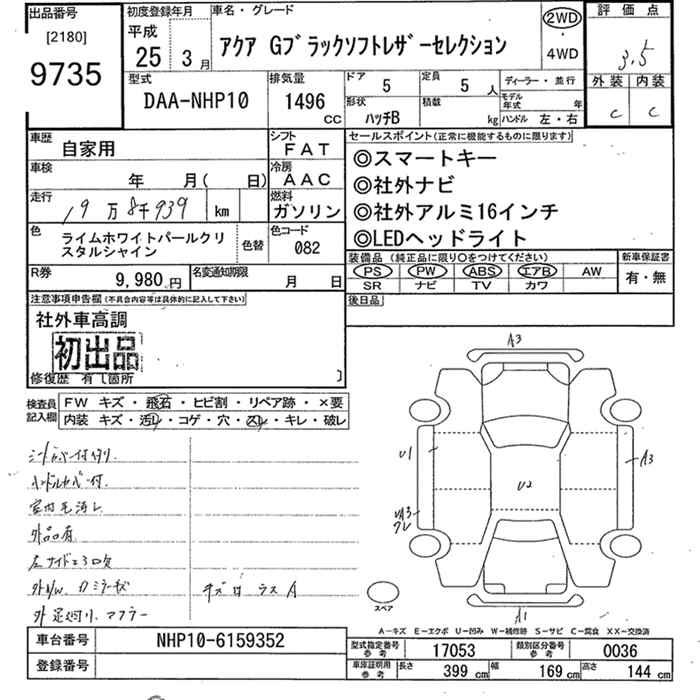 出品番号
[2180]
9735
初度登録年月
平成
25 3月
車名・グレード
アクア Gブラックソフトレザーセレクション
2WD
・
4WD
評価点
3.5
外装 内装
C C
型式
DAA-NHP10
排気量
1496
CC
ドア 5
定員 5 人
形状 ハッチB
積載 kg
ディーラー・並行
モデル年式 年
ハンドル 左・右
車歴 自家用
シフト FAT
車検 年 月( 日)
冷房 AAC
走行 19万8千939 km
燃料 ガソリン
色 ライムホワイトパールクリスタルシャイン
色替
色コード 082
R券 9,980円
名変通知期限 月 日
セールスポイント(正常に機能するものに限ります)
◎スマートキー
◎社外ナビ
◎社外アルミ16インチ
◎LEDヘッドライト
装備品 (純正品に限り○をつけてください)
PS PW ABS エアB AW
SR ナビ TV カワ
新車保証書
有・無
後日品
注意事項申告欄(不具合内容等は具体的に記入して下さい)
社外車高調
初出品
修復歴 有 箇所
検査員記入欄
FW キズ・飛石・ヒビ割・リペア跡・×要
内装 キズ・汚レ・コゲ・穴・スレ・キレ・破レ
外品有
A3
U1
A3
U2
A1
スペア
A―キズ E―エクボ U―凹み W―補修跡 S―サビ C―腐食 XX―交換済
車台番号 NHP10-6159352
登録番号
型式指定番号 参考 17053
類別区分番号 参考 0036
車庫証明用 参考
長さ 399 cm
幅 169 cm
高さ 144 cm